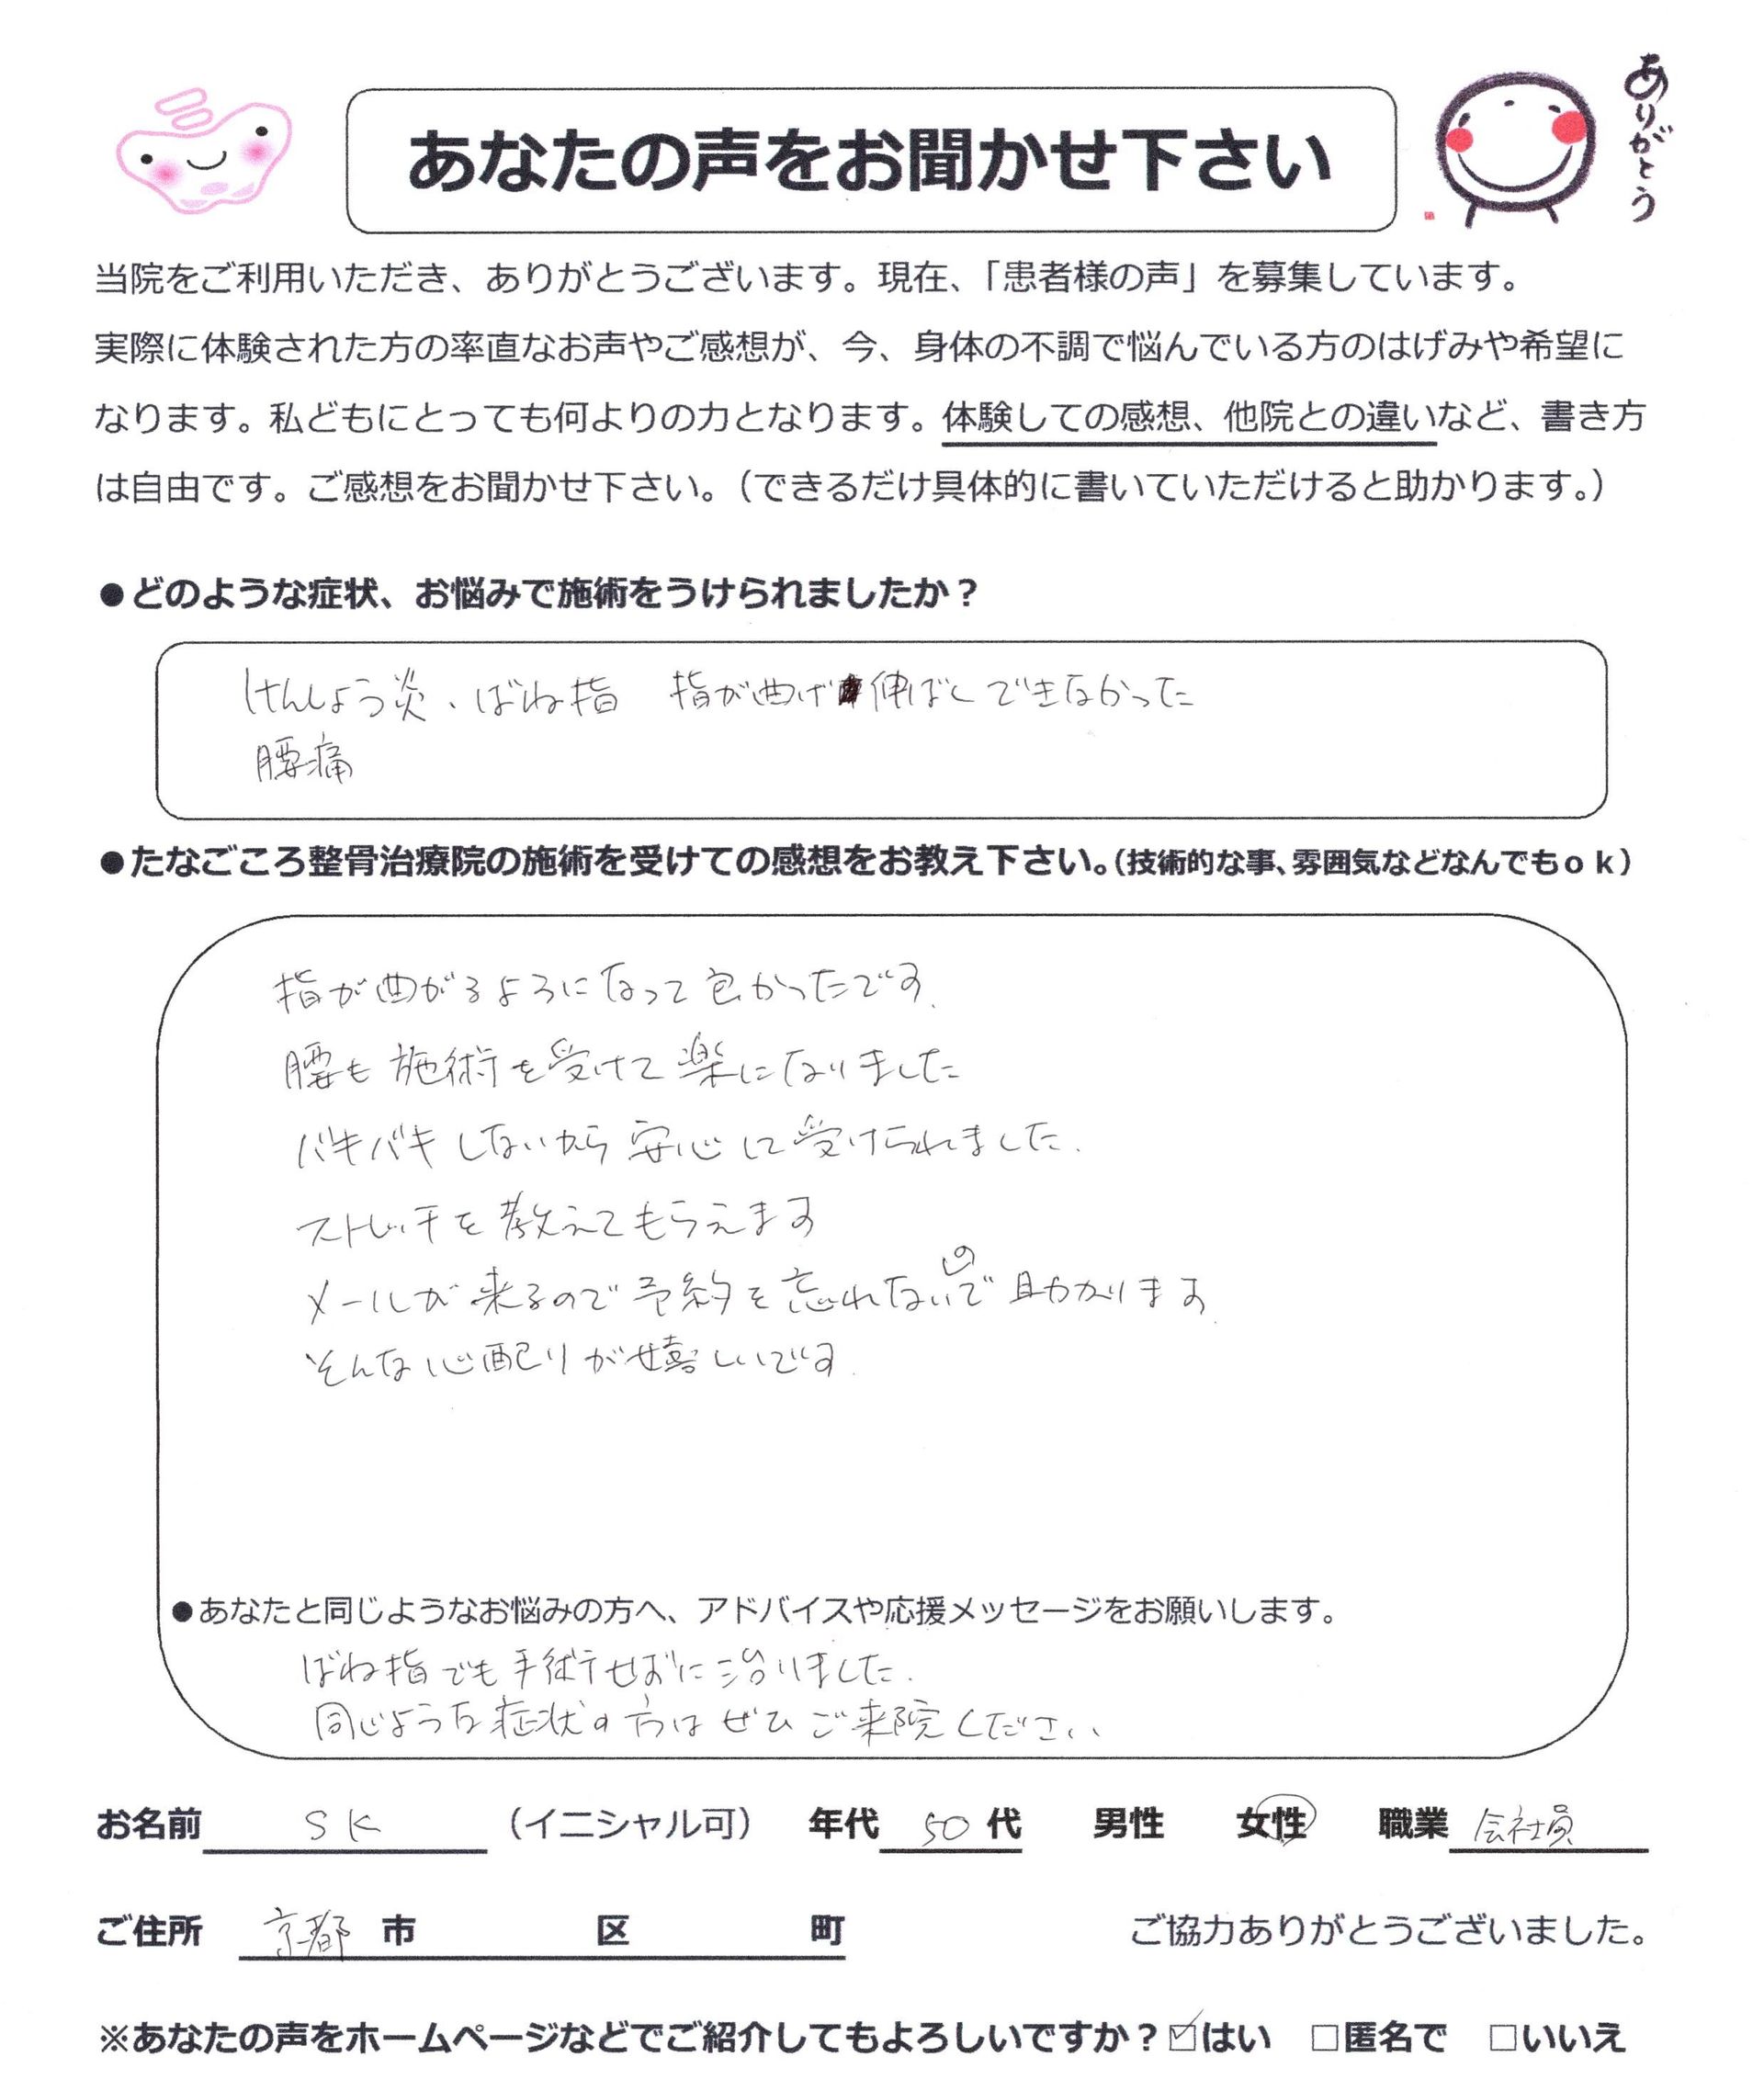 あなたの声をお聞かせ下さい
ありがとう
当院をご利用いただき、ありがとうございます。現在、「患者様の声」を募集しています。
実際に体験された方の率直なお声やご感想が、今、身体の不調で悩んでいる方のはげみや希望に
なります。私どもにとっても何よりの力となります。体験しての感想、他院との違いなど、書き方
は自由です。ご感想をお聞かせ下さい。（できるだけ具体的に書いていただけると助かります。）
●どのような症状、お悩みで施術をうけられましたか？
けんしょう炎、ばね指　指が曲げ伸ばしできなかった
腰痛
●たなごころ整骨治療院の施術を受けての感想をお教え下さい。（技術的な事、雰囲気などなんでもｏｋ）
指が曲がるようになって良かったです。
腰も施術を受けて楽になりました
バキバキしないから安心して受けられました。
ストレッチを教えてもらえます
メールが来るので予約を忘れないので助かります。
そんな心配りが嬉しいです。
●あなたと同じようなお悩みの方へ、アドバイスや応援メッセージをお願いします。
ばね指でも手術せずに治りました。
同じような症状の方はぜひご来院ください
お名前 SK （イニシャル可） 年代 50 代 男性 女性 職業 会社員
ご住所 京都 市 区 町 ご協力ありがとうございました。
※あなたの声をホームページなどでご紹介してもよろしいですか？☑はい □匿名で □いいえ